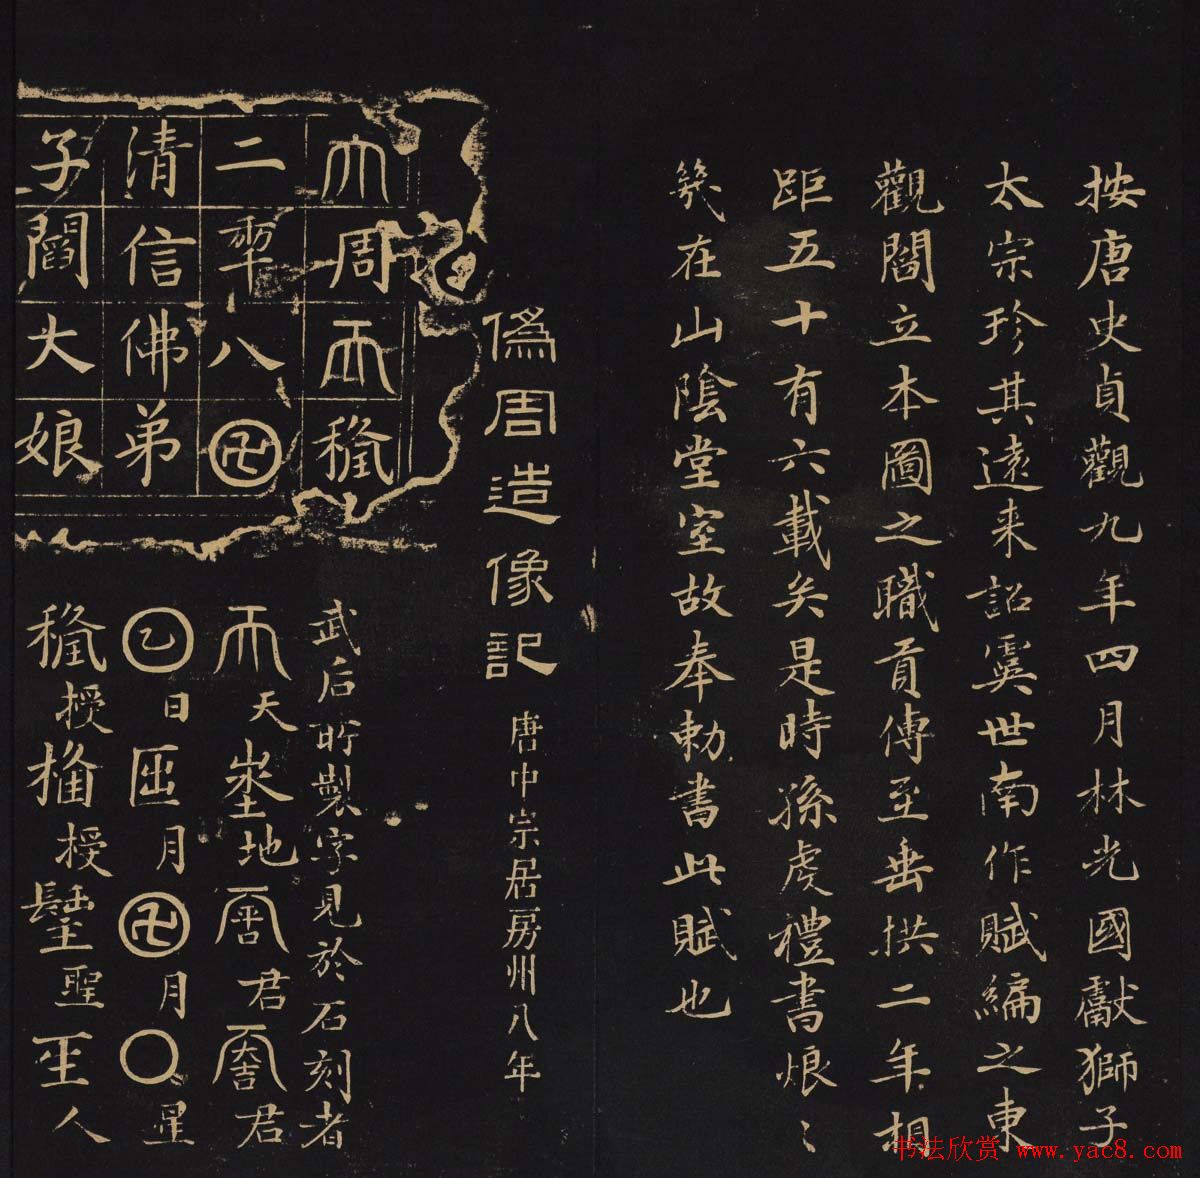 按唐史貞觀九年四月林光國獻獅子
太宗珍其遠来詔虞世南作賦編之東
觀閻立本圖之職貢傳至垂拱二年相
距五十有六載矣是時孫虔禮書烺〻
在山陰堂室故奉勅書此賦也
僞周造像記
唐中宗居房州八年
大周𠀑𥠢
二𠡦八卍
清信佛弟
子閻大娘
武后所製字見於石刻者
𠀑天埊地𠺞君君
𡆠日𠥱月卍月〇星
𥠢授授聖𤯔人
书法欣赏 www.yac8.com